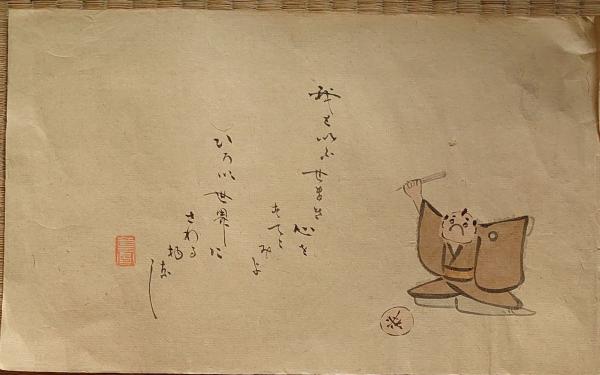 我といふせまき
心を
すてゝみよ
ひろい世界に
さわる
物なし